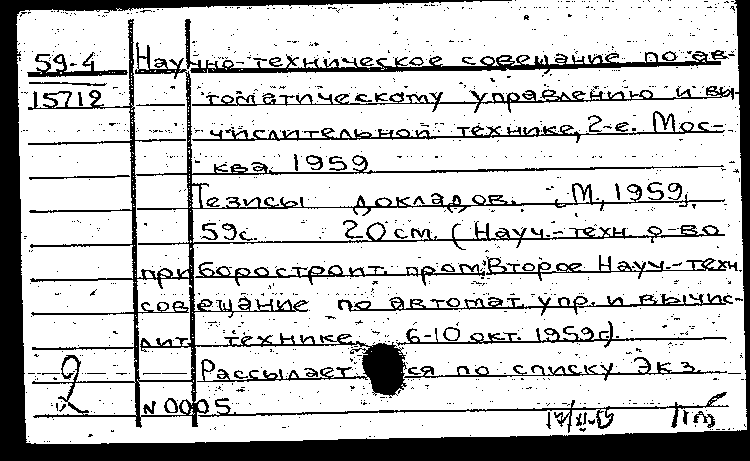 59-4 Научно-техническое совещание по ав-
15712 томатическому управлению и вы-
числительной технике, 2-е. Мос-
ква. 1959.
Тезисы докладов. [М., 1959].
59с. 20 см. (Науч.-техн. о-во
приборостроит. пром. Второе Науч.-техн.
совещание по автомат. упр. и вычис-
лит. технике. 6-10 окт. 1959г.).
Рассылается по списку Экз.
2 N 0005.